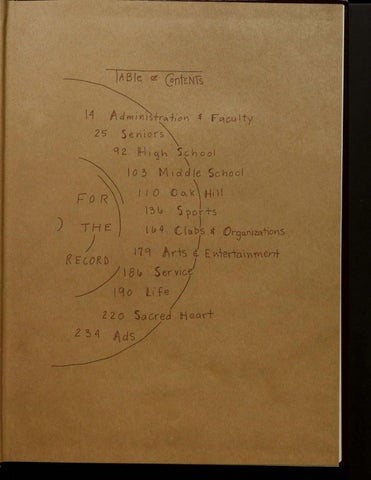 TABLE of CONTENTS
14 Administration & Faculty
25 Seniors
92 High School
103 Middle School
110 Oak Hill
136 Sports
164 Clubs & Organizations
179 Arts & Entertainment
186 Service
190 Life
220 Sacred Heart
234 Ads
FOR
THE
RECORD